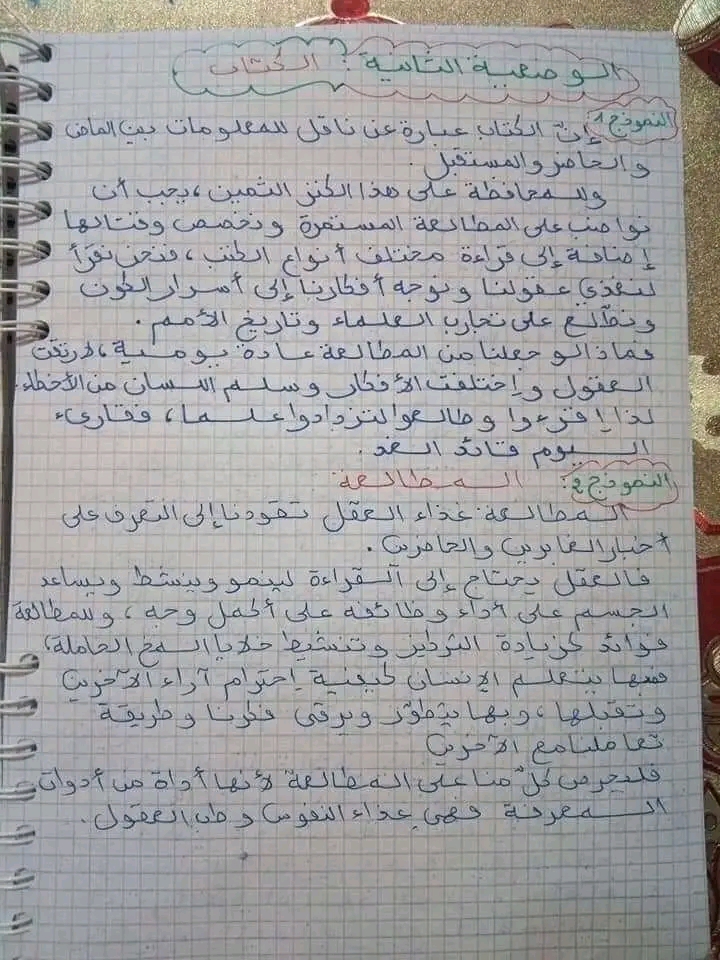 الوضعية الثانية: الكتاب
النموذج 1
إنّ الكتاب عبارة عن ناقل للمعلومات بين الماضي
والحاضر والمستقبل.
وللمحافظة على هذا الكنز الثمين، يجب أن
نواضب على المطالعة المستمرة ونخصص وقتا لها
إضافة إلى قراءة مختلف أنواع الكتب، فنحن نقرأ
لنغذي عقولنا ونوجه أفكارنا إلى أسرار الكون
ونطّلع على تجارب العلماء وتاريخ الأمم.
فماذا لو جعلنا من المطالعة عادة يومية، لارتقت
العقول وإختلفت الأفكار وسلم اللسان من الأخطاء.
لذا إقرءوا وطالعوا لتزدادوا علما، فقارىء
اليوم قائد الغد.
النموذج 2: المطالعة
المطالعة غذاء العقل تقودنا إلى التعرف على
أخبار الغابرين والحاضرين.
فالعقل يحتاج إلى القراءة لينمو وينشط ويساعد
الجسم على أداء وظائفه على أكمل وجه، وللمطالعة
فوائد كزيادة التركيز وتنشيط خلايا المخ الخاملة،
فبها يتعلم الإنسان كيفية إحترام آراء الآخرين
وتقبلها، وبها يتطوّر ويرقى فكرنا وطريقة
تعاملنا مع الآخرين
فليحرص كلّ منا على المطالعة لأنها أداة من أدوات
المعرفة فهي غذاء النفوس وطب العقول.